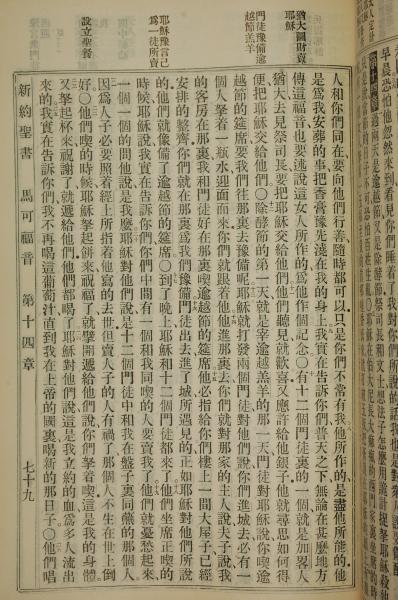 猶大圖財賣
耶穌
門徒豫備逾
越節羔羊
耶穌言己
爲一徒所賣
設立聖餐
人和你們同在要向他們行善隨時都可以只是你們不常有我他所作的是盡他所能的他
是爲我安葬的事把香膏豫先澆在我的身上我實在告訴你們普天之下無論在甚麼地方
傳這福音也要述說這女人所作的爲他作個記念〇有十二個門徒裏的一個就是加畧人
猶大去見祭司長要把耶穌交給他們他們聽見就歡喜又應許給他銀子他就尋思如何得
便把耶穌交給他們〇除酵節的第一天就是宰逾越羔羊的那一天門徒對耶穌說你喫逾
越節的筵席要我們往那裏去豫備呢耶穌就打發兩個門徒對他們說你們進城去必有一
個人拏着一瓶水迎面而來你們就跟着他他進那裏去你們就對那家的主人說夫子說我
的客房在那裏我和門徒好在那裏喫逾越節的筵席他必指給你們樓上一間大屋子已經
安排的整齊你們就在那裏爲我們豫備門徒出去進了城所遇見的正如耶穌對他們所說
的他們就備備了逾越節的筵席〇到了晚上耶穌和十二個門徒都來了他們坐席正喫的
時候耶穌說我實在告訴你們你們中間有一個和我同喫的人要賣我了他們就憂愁起來
一個一個的問他說是我麼耶穌對他們說是十二個門徒中和我在盤子裏同蘸的那個人
因爲人子必要照着經上所指着他寫的去世但賣人子的人有禍了那個人不生在世上倒
好〇他們喫的時候耶穌拏起餅來祝福了就擘開遞給他們說你們拏着喫這是我的身體
又拏起杯來祝謝了就遞給他們他們都喝了耶穌對他們說這是我立約的血爲多人流出
來的我實在告訴你們我不再喝這葡萄汁直到我在上帝的國裏喝新的那日子〇他們唱
新約聖書 馬可福音 第十四章 七十九